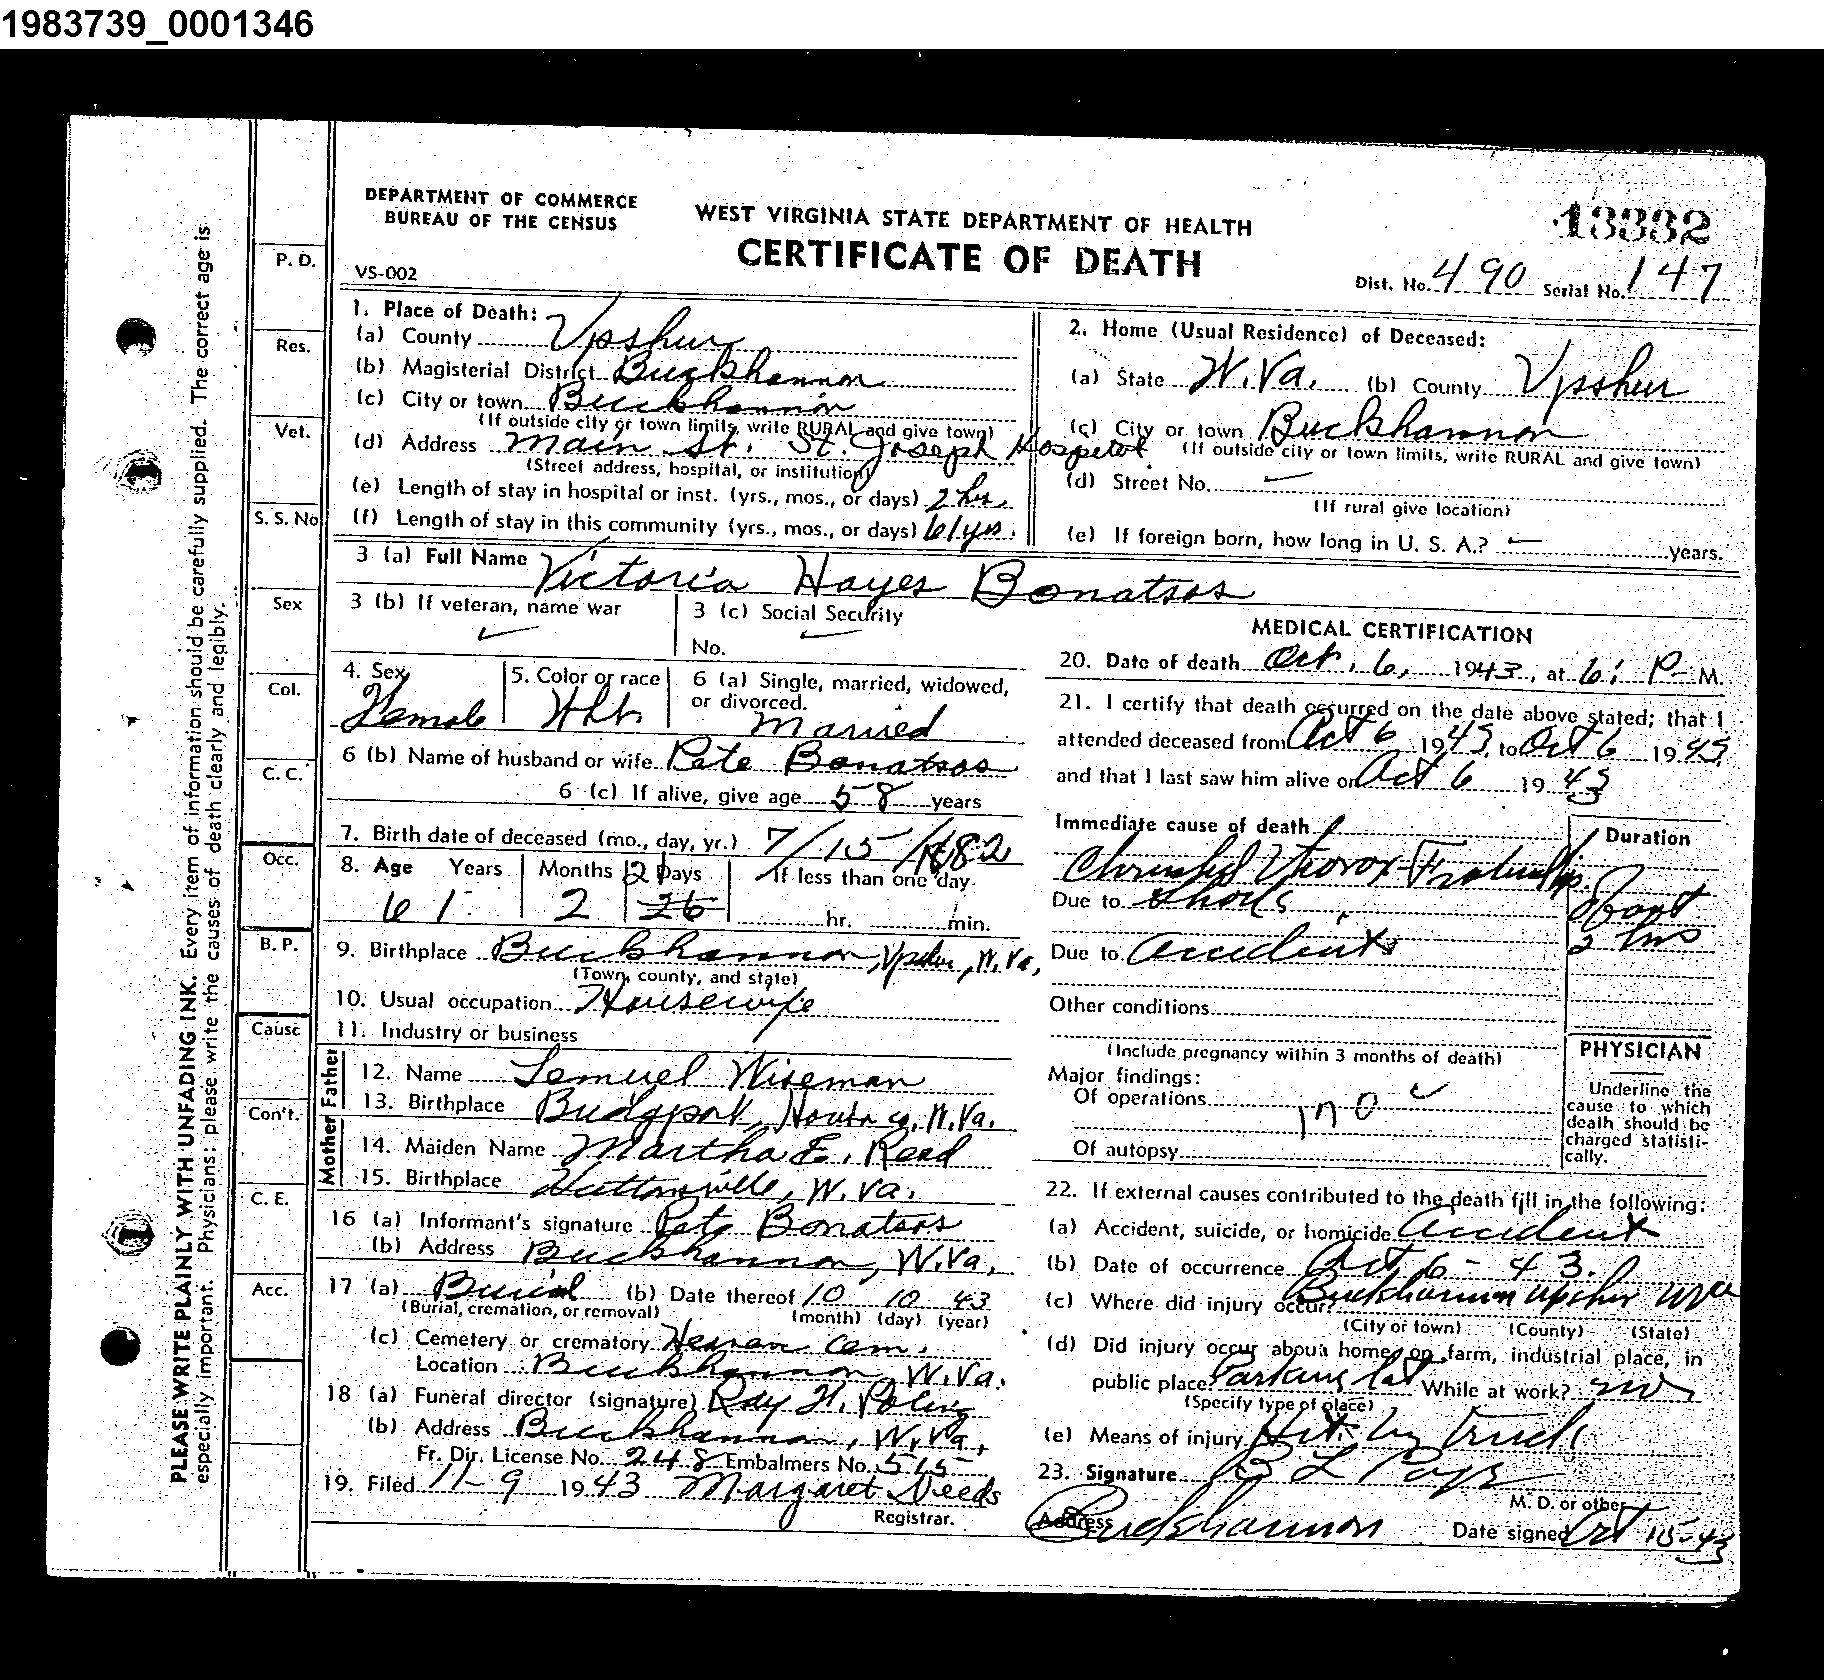 1983739_0001346
DEPARTMENT OF COMMERCE
BUREAU OF THE CENSUS
WEST VIRGINIA STATE DEPARTMENT OF HEALTH
CERTIFICATE OF DEATH
13332
VS-002
Dist. No. 490 Serial No. 147
PLEASE WRITE PLAINLY WITH UNFADING INK. Every item of information should be carefully supplied. The correct age is
especially important. Physicians: please write the causes of death clearly and legibly.
P. D.
Res.
Vet.
S. S. No
Sex
Col.
C. C.
Occ.
B. P.
Cause
Con't.
C. E.
Acc.
1. Place of Death:
(a) County Upshur
(b) Magisterial District Buckhannon
(c) City or town Buckhannon
(If outside city or town limits, write RURAL and give town)
(d) Address Main St. St. Joseph Hospital
(Street address, hospital, or institution)
(e) Length of stay in hospital or inst. (yrs., mos., or days) 2 hrs.
(f) Length of stay in this community (yrs., mos., or days) 61 yrs.
2. Home (Usual Residence) of Deceased:
(a) State W. Va. (b) County Upshur
(c) City or town Buckhannon
(If outside city or town limits, write RURAL and give town)
(d) Street No.
(If rural give location)
(e) If foreign born, how long in U. S. A.? years.
3 (a) Full Name Victoria Hayes Bonatsos
3 (b) If veteran, name war
3 (c) Social Security
No.
4. Sex Female
5. Color or race Wht.
6 (a) Single, married, widowed,
or divorced. Married
6 (b) Name of husband or wife Pete Bonatsos
6 (c) If alive, give age 58 years
7. Birth date of deceased (mo., day, yr.) 7/15/1882
8. Age Years Months 21 Days If less than one day
61 2 26 hr. min.
9. Birthplace Buckhannon, Upshur, W. Va.
(Town, county, and state)
10. Usual occupation Housewife
11. Industry or business
Father
12. Name Lemuel Wiseman
13. Birthplace Bridgport, Co, W. Va.
Mother
14. Maiden Name Martha E. Read
15. Birthplace Huttonsville, W. Va.
16 (a) Informant's signature Pete Bonatsos
(b) Address Buckhannon, W. Va.
17 (a) Burial (b) Date thereof 10 10 43
(Burial, cremation, or removal) (month) (day) (year)
(c) Cemetery or crematory Heavan Cem.
Location Buckhannon W. Va.
18 (a) Funeral director (signature) Ray H. Poling
(b) Address Buckhannon, W. Va.
Fr. Dir. License No. 248 Embalmers No. 515
19. Filed 11-9 1943 Margaret Deeds
Registrar.
MEDICAL CERTIFICATION
20. Date of death Oct. 6, 1943, at 6: P- M.
21. I certify that death occurred on the date above stated; that I
attended deceased from Oct 6 1943, to Oct 6 1943
and that I last saw him alive on Oct 6 1943
Immediate cause of death
Crushed Thorax
Due to Shock
Due to Accident
Duration
2 hrs
Other conditions
(Include pregnancy within 3 months of death)
Major findings:
Of operations no
Of autopsy
PHYSICIAN
Underline the
cause to which
death should be
charged statisti-
cally.
22. If external causes contributed to the death fill in the following:
(a) Accident, suicide, or homicide Accident
(b) Date of occurrence Oct 6 - 43.
(c) Where did injury occur? Buckhannon Upshur W Va
(City or town) (County) (State)
(d) Did injury occur about home, on farm, industrial place, in
public place? Parking lot While at work? no
(Specify type of place)
(e) Means of injury Hit by Truck
23. Signature B L Page
M. D. or other
Address Buckhannon Date signed Oct 15-43